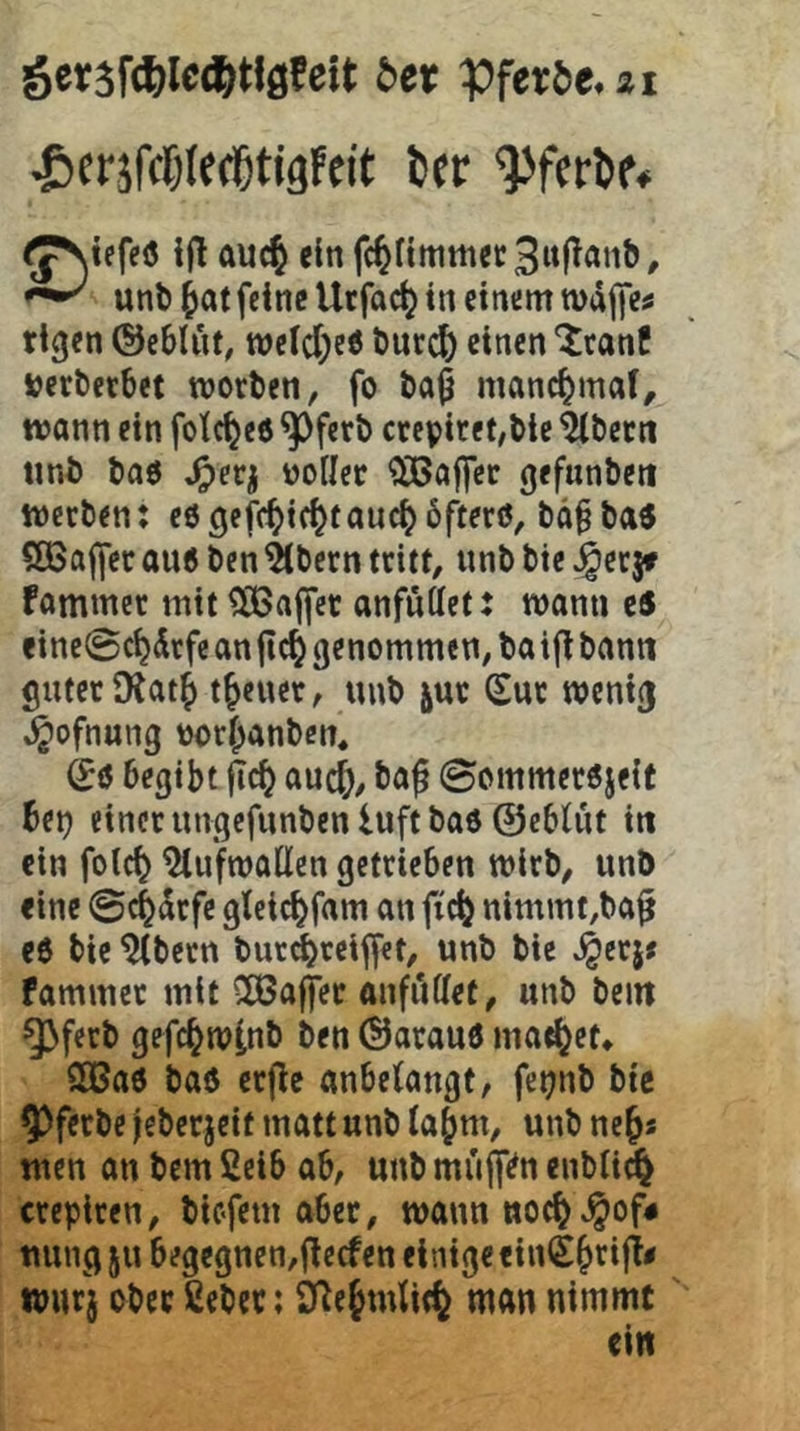 Herzschlechtigkeit der Pferde. 21
Herzschlechtigkeit der Pferde.
Dieses ist auch ein schlimmer Zustand,
und hat seine Ursach in einem wässe-
rigen Geblüt, welches durch einen Trank
verderbet worden, so daß manchmal,
wann ein solches Pferd crepiret, die Adern
und das Herz voller Wasser gefunden
werden: es geschicht auch öfters, daß das
Wasser aus den Adern tritt, und die Herz-
kammer mit Wasser anfüllet: wann es
eine Schärfe an sich genommen, da ist dann
guter Rath theuer, und zur Cur wenig
Hofnung vorhanden.
Es begibt sich auch, daß Sommerszeit
bey einer ungesunden Luft das Geblüt in
ein solch Aufwallen getrieben wird, und
eine Schärfe gleichsam an sich nimmt, daß
es die Adern durchreisset, und die Herz-
kammer mit Wasser anfüllet, und dem
Pferd geschwind den Garaus machet.
Was das erste anbelangt, seynd die
Pferde jederzeit matt und lahm, und neh-
men an dem Leib ab, und müssen endlich
crepiren, diesem aber, wann noch Hof-
nung zu begegnen, stecken einige ein Christ-
wurz oder Leber: Nehmlich man nimmt
ein